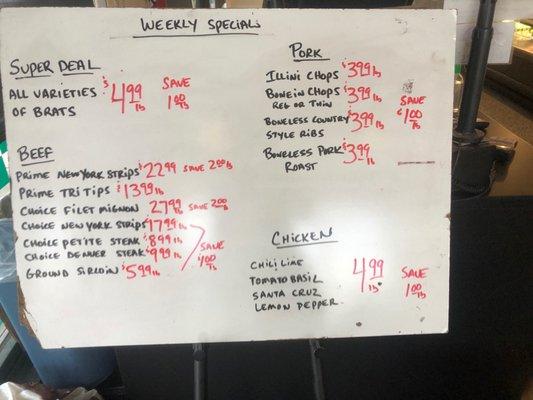 WEEKLY SPECIALS
SUPER DEAL
ALL VARIETIES OF BRATS $4.99 lb SAVE 1.00 lb
BEEF
PRIME NEW YORK STRIPS $22.99 SAVE 2.00 lb
PRIME TRI TIPS $13.99 lb
CHOICE FILET MIGNON 27.99 lb SAVE 2.00 lb
CHOICE NEW YORK STRIPS $17.99 lb
CHOICE PETITE STEAK $8.99 lb
CHOICE DENVER STEAK $9.99 lb
GROUND SIRLOIN $5.99 lb
SAVE $1.00 lb
PORK
ILLINI CHOPS $3.99 lb
BONEIN CHOPS $3.99 lb
REG OR THIN
BONELESS COUNTRY $3.99 lb
STYLE RIBS
BONELESS PORK $3.99 lb
ROAST
SAVE $1.00 lb
CHICKEN
CHILI LIME
TOMATO BASIL
SANTA CRUZ
LEMON PEPPER
4.99 lb SAVE 1.00 lb